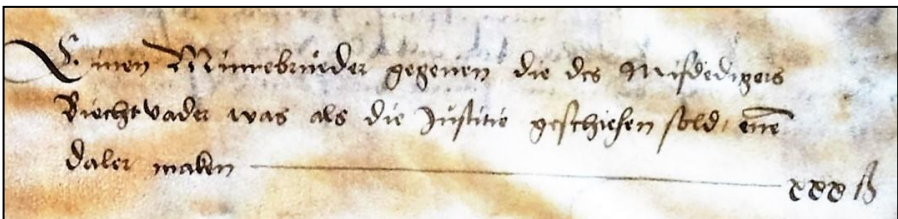 Einen Minnebrueder gegeven die des Misdedigers
Biechtvader was als die Justitie geschiesen sold, enen
daler maken xxx ß